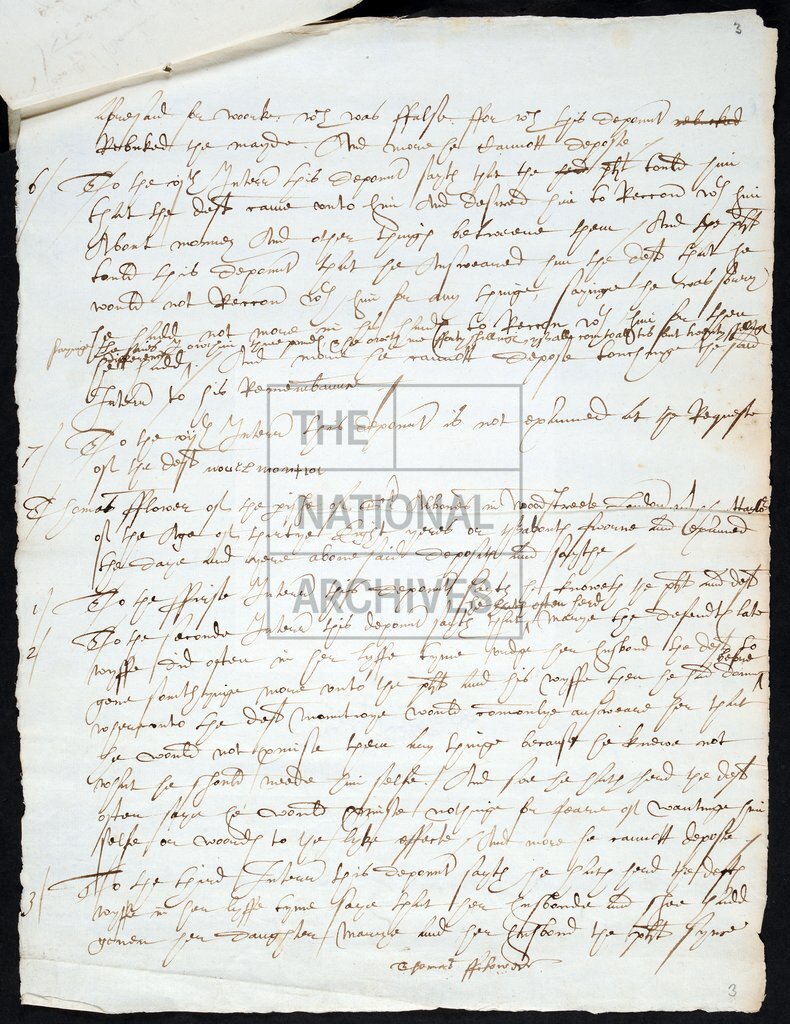 3
aforesaid or woorke wch was ffalse. ffor wch this deponent rebuked
Rebuked the mayde. And more he cannott depose
6/ To the vjth Interr this deponent sayth that the plt tould him
that the deft came unto him And desired him to Reccon wth him
About money And other things betweene them And the plt
tould this deponent that he Answeared him the deft that he
would not Reccon wth him for any thinge, sayinge he was sorry
he hadd not more in his hands to Reccon wth him for then
And more he cannott depose touchinge the said
Interr to his Remembrance
7/ To the vijth Interr this deponent is not examined at the Requeste
of the deft
Thomas fflower of the pishe of St Albones in Woodstreete London
of the Age of thirtye Eight yeres or thabouts sworne and examined
the daye and yere abovesaid deposeth and sayth
THE
NATIONAL
ARCHIVES
1/ To the ffirste Interr this deponent sayth he knoweth the plt and deft
he hath often herd
2/ To the seconde Interr this deponent sayth that Marye the defendts late
wyffe did often in her lyffe tyme urdge her husbond the deft to
geve somthinge more unto the plt and his wyffe then he had donn before
whereunto the deft would comonlye answeare her that
he would not pmise them any thinge because he knewe not
what he should neede him selfe. And soe he hath herd the deft
often saye he would pmise nothinge for feare of wantinge him
selfe or woords to the lyke effecte And more he cannott depose
3/ To the third Interr this deponent sayth he hath herd the defts
wyffe in her lyffe tyme saye that her husbande and shee hadd
geven her daughter Marye and her husbond the plt synce
Thomas fflower
3